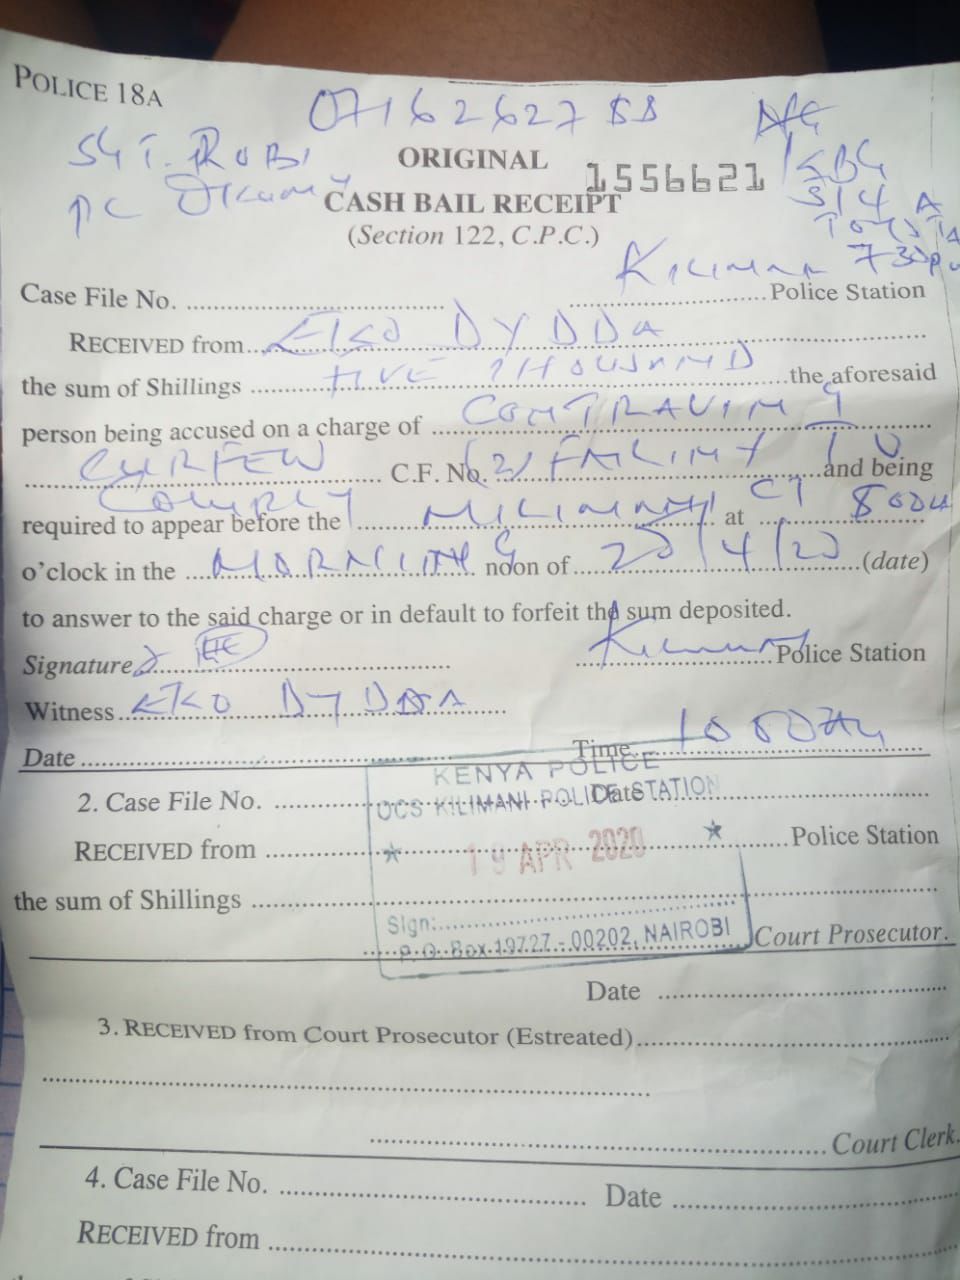 POLICE 18A
0716262788
SGT. ROBI
PC
ORIGINAL
1556621
KBG
314 A
CASH BAIL RECEIPT
(Section 122, C.P.C.)
730p
Case File No. .......... KILIMANI .......... Police Station
RECEIVED from .......... EKO DYDDA
the sum of Shillings .......... FIVE THOUSAND .......... the aforesaid
person being accused on a charge of .......... CONTRAVING
CURFEW .......... C.F. No. (2) FAILING TO .......... and being
COMPLY
required to appear before the .......... MILIMANI CT .......... at .......... 800AM
o'clock in the .......... MORNING .......... noon of .......... 20/4/20 .......... (date)
to answer to the said charge or in default to forfeit the sum deposited.
Signature .......... Kilimani .......... Police Station
Witness .......... EKO DYDDA
Date .......... Time .......... 1000AM
KENYA POLICE
2. Case File No. .......... Date ..........
OCS KILIMANI POLICE STATION
RECEIVED from .......... Police Station
19 APR 2020
the sum of Shillings ..........
Sign: ..........
P.O. Box 19727 - 00202, NAIROBI
Court Prosecutor.
Date ..........
3. RECEIVED from Court Prosecutor (Estreated) ..........
.......... Court Clerk.
4. Case File No. .......... Date ..........
RECEIVED from ..........